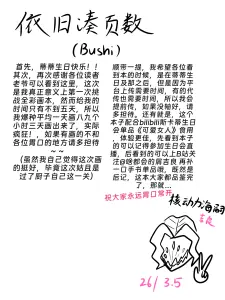 依旧凑页数
(Bushi)
首先,蒂蒂生日快乐!!
其次,再次感谢各位读者
老爷可以看到这里,这次
是我真正意义上第一次挑
战全彩画本,然而给我的
时间只有不到五天,所以
我爆种平均一天画八九个
小时三天画出来了,实际
疯狂!,如果有画的不和
各位胃口的地方请多担待
~ ~
(虽然我自己觉得这次画
的挺好,毕竟这次姑且是
过了厨子自己这一关)
顺带一提,我希望各位看
到本的时候,是在蒂蒂生
日及那之后,但是因为平
台上传需要时间,有的代
传也需要时间,所以我会
提前传,如果没忍好,请
多担待。还有就是,这个
本子配合bilibili斯卡蒂生日
会单品《可爱女人》食用
,体验更佳,先看到本子
的可以记得参加生日会直
播,后看到的可以上B站关
注@啥都会的周吉良 再补
一口手书单品哦,既然是
后记,这本大家都品鉴完
了,那就...
祝大家永远胃口常开
核动力海嗣
26/3.5